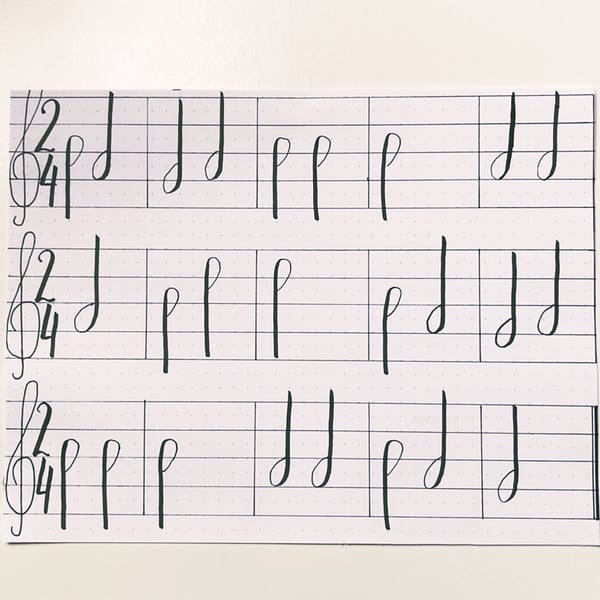 2
4
2
4
2
4